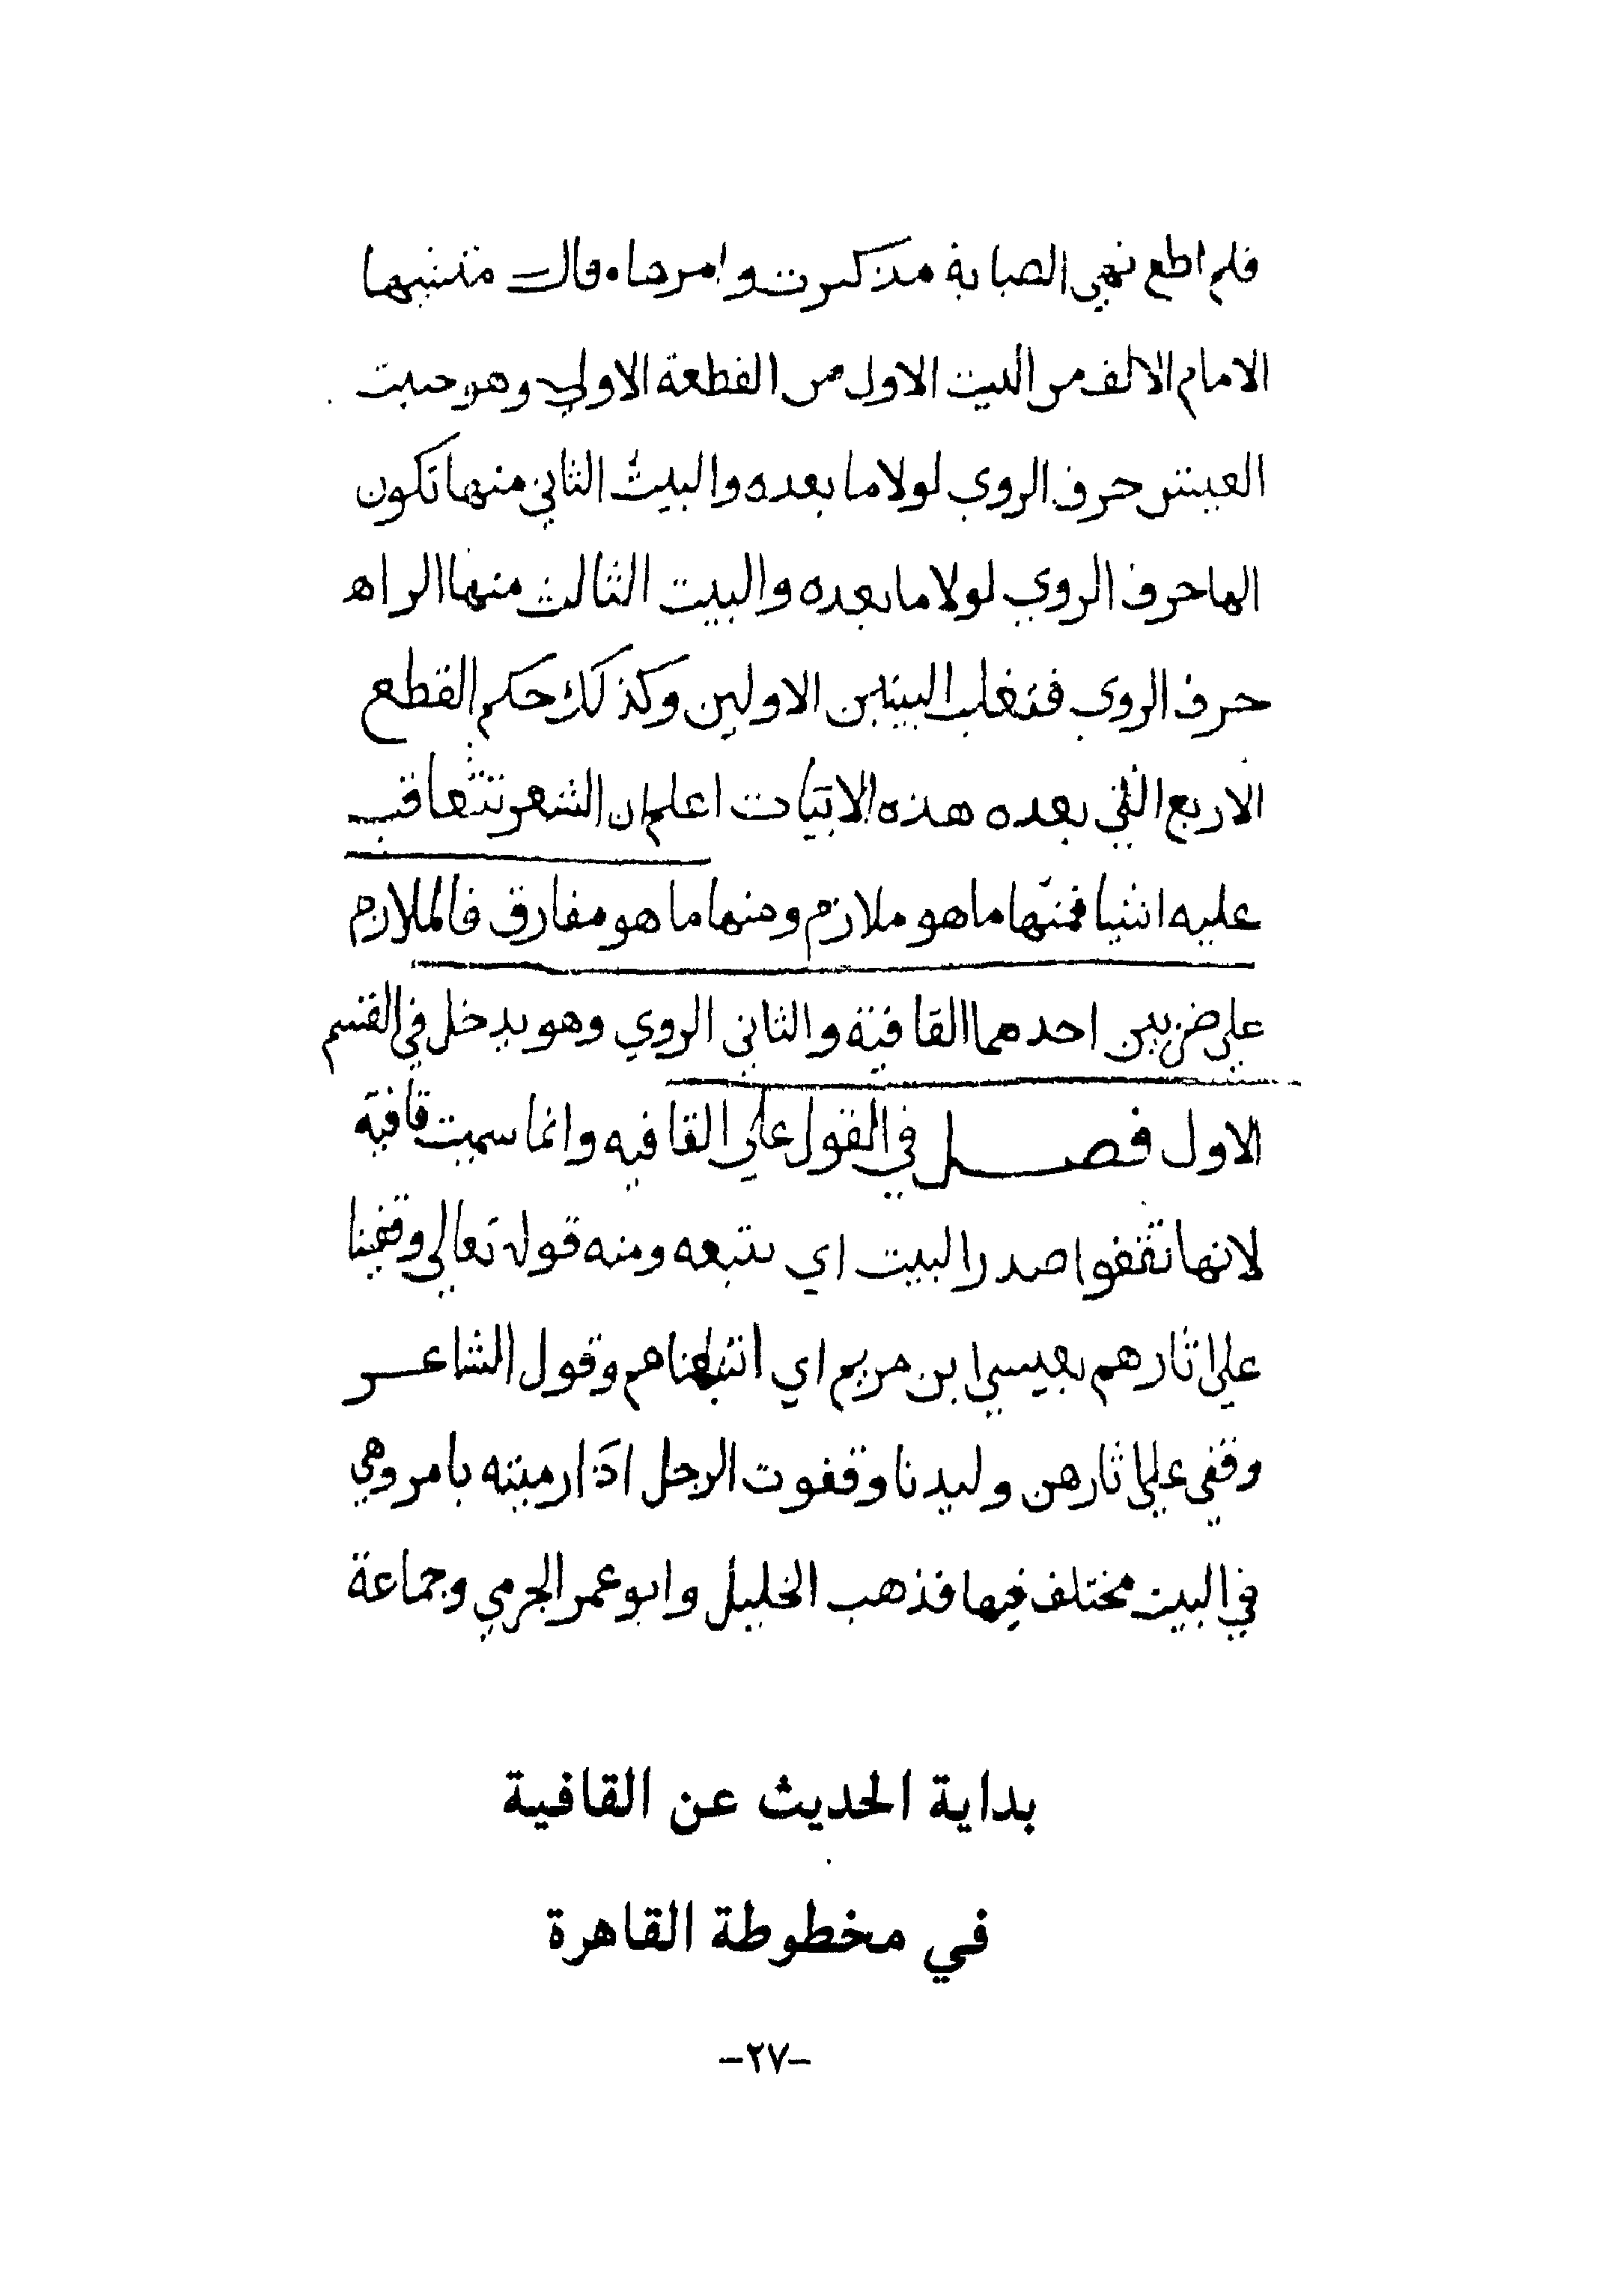 فلم اطع نهي الصبابة مذ كبرت وامرها ۰ قال منشيها
الامام الالف من البيت الاول من القطعة الاولي وهو حيت
العينين حرف الروي لولا ما بعده والبيت الثاني منها تكون
الها حرف الروي لولا ما بعده والبيت الثالث منها الراه
حرف الروي فتغلب البيتين الاولين وكذلك حكم القطع
الاربع التي بعده هذه الابيات اعلم ان الشعر تتعاقب
عليه اشيا فمنها ما هو ملازم ومنها ما هو مفارق فالملازم
علي ضربين احدهما القافية والثاني الروي وهو يدخل في القسم
الاول فصل في القول علي القافيه وانما سميت قافية
لانها تقفوا صدر البيت اي تتبعه ومنه قوله تعالي وقفينا
علي اثارهم بعيسي ابن مريم اي اتبعناهم وقول الشاعر
وقفي علي اثارهن وليدنا وقفوت الرجل اذا رميته بامر وهي
في البيت مختلف فيها فذهب الخليل وابو عمر الجرمي وجماعة
بداية الحديث عن القافية
في مخطوطة القاهرة
-٢٧-